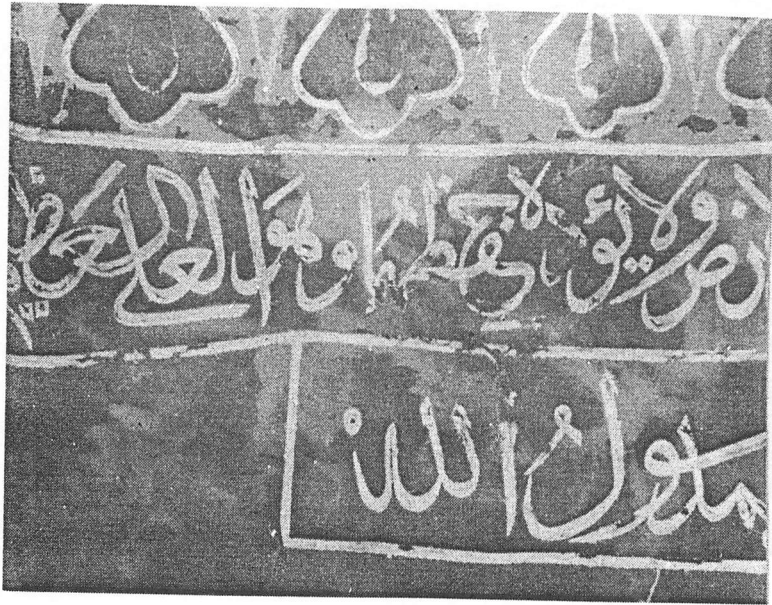 الارض ولا يؤده حفظهما وهو العلي العظيم
رسول الله